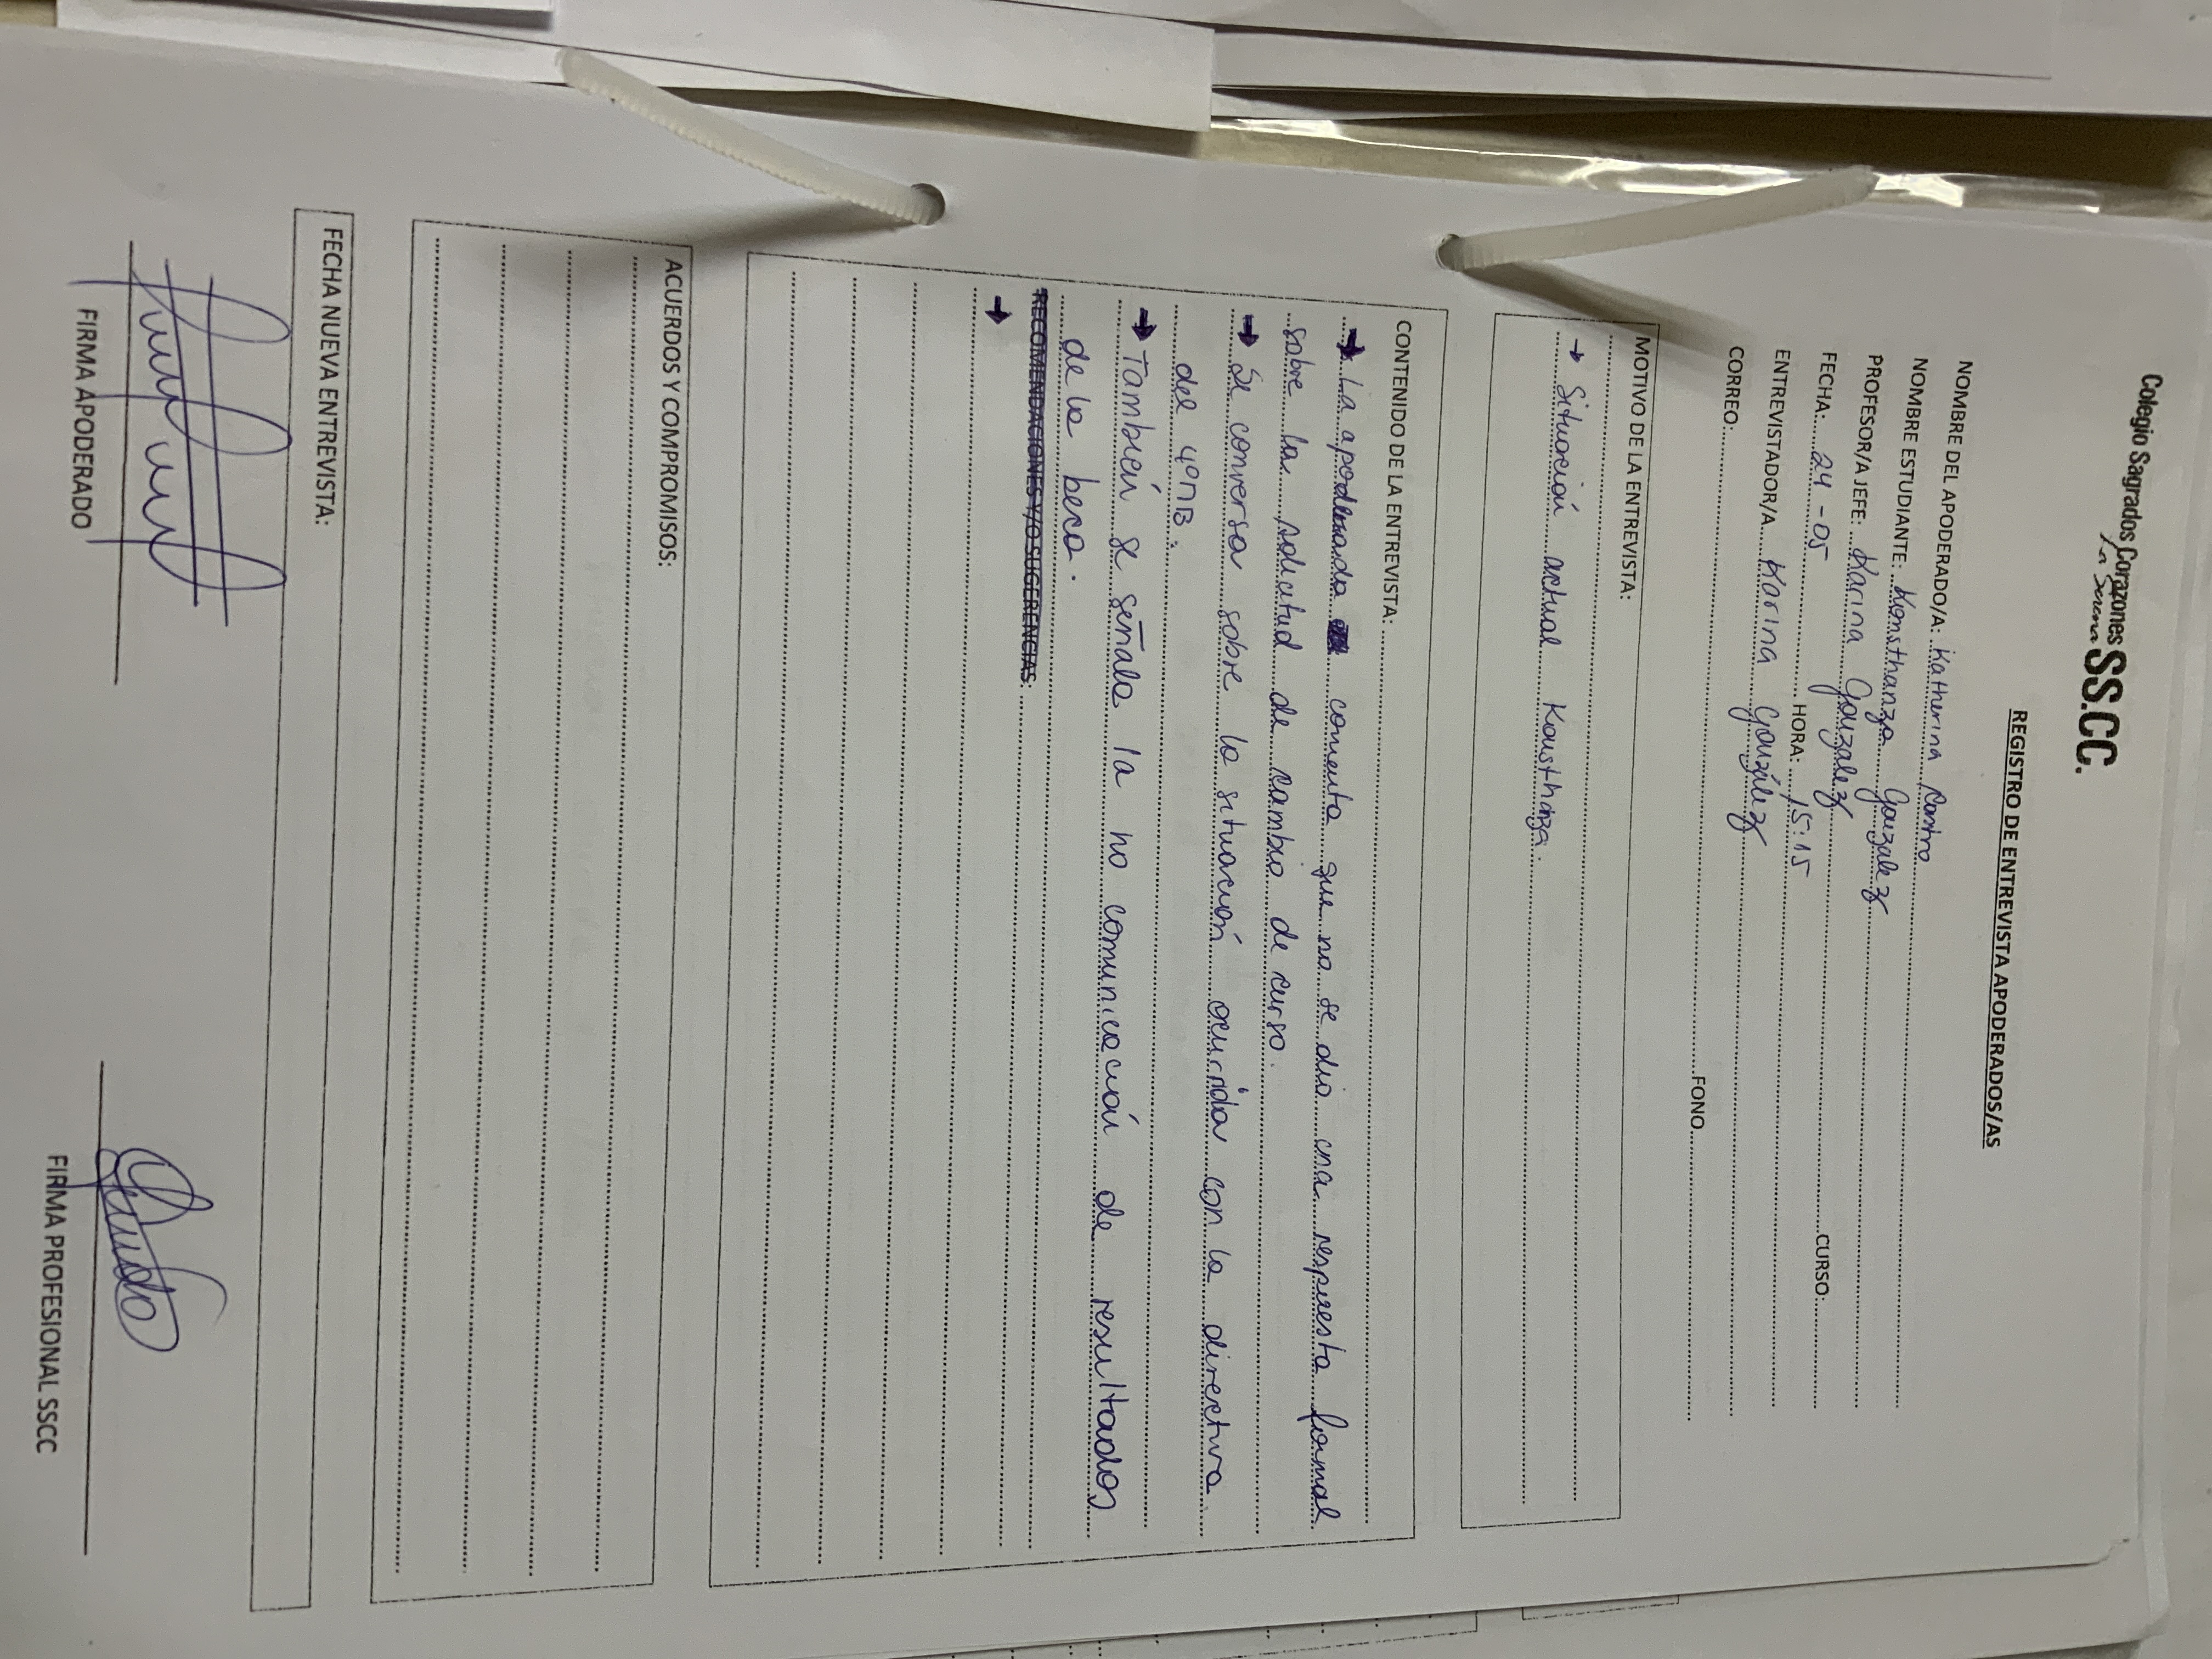 Colegio Sagrados Corazones
La Serena SS.CC.
REGISTRO DE ENTREVISTA APODERADOS/AS
NOMBRE DEL APODERADO/A: Katherina Castro
NOMBRE ESTUDIANTE: Konsthanza González
PROFESOR/A JEFE: Karina González CURSO:
FECHA: 24-05 HORA: 15:15
ENTREVISTADOR/A Karina González
CORREO: FONO
MOTIVO DE LA ENTREVISTA:
→ Situación actual Konsthanza.
CONTENIDO DE LA ENTREVISTA:
→ La apoderada comenta que no se dio una respuesta formal
sobre la solicitud de cambio de curso.
→ Se conversa sobre la situación ocurrida con la directiva
del 4°MB.
→ También se señala la no comunicación de resultados
de la beca.
RECOMENDACIONES Y/O SUGERENCIAS:
→
ACUERDOS Y COMPROMISOS:
FECHA NUEVA ENTREVISTA:
FIRMA APODERADO
FIRMA PROFESIONAL SSCC